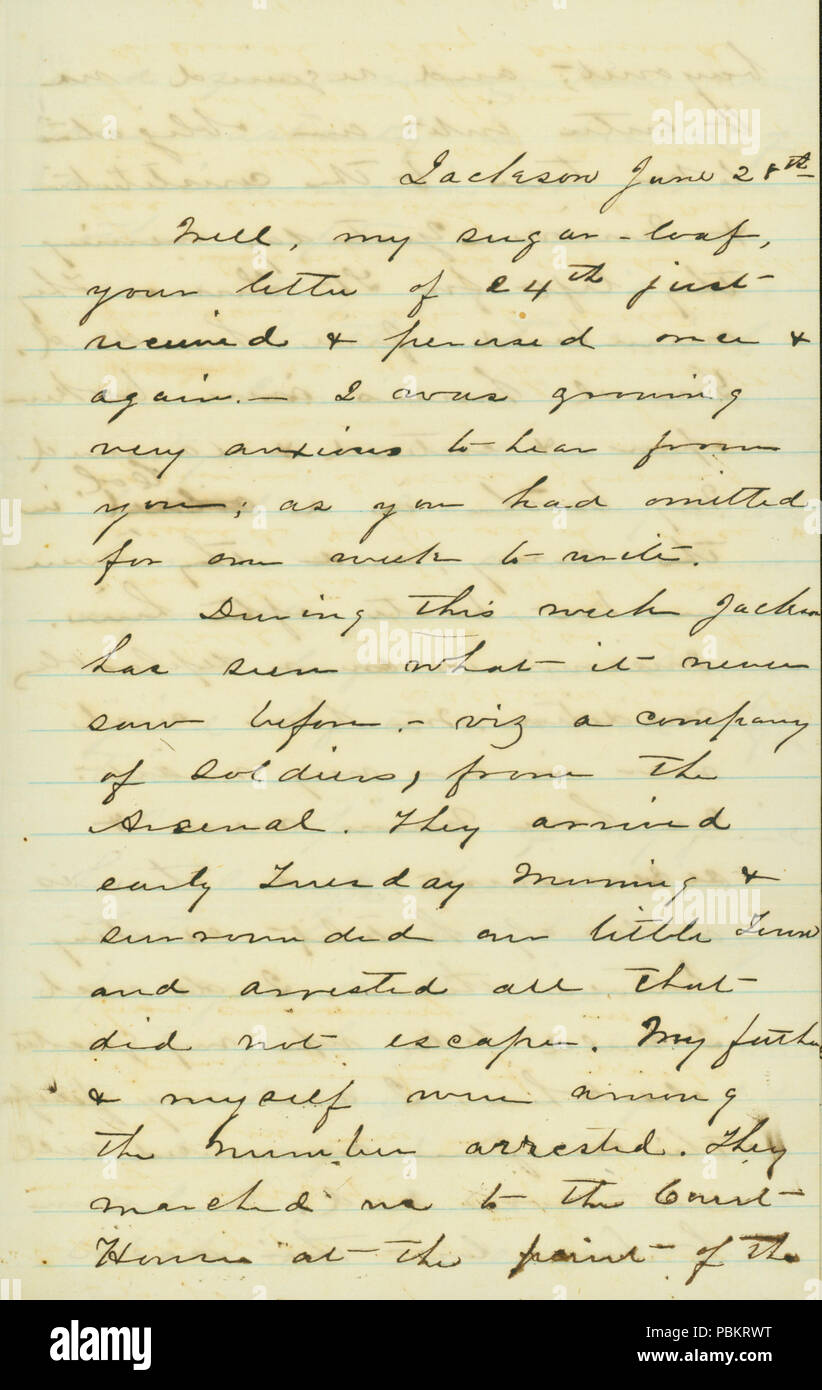 Jackson June 28th
Well, my sugar-loaf,
your letter of 24th just
received & perused once &
again. — I was growing
very anxious to hear from
you; as you had omitted
for one week to write.
During this week Jackson
has seen what it never
saw before. - viz a company
of soldiers, from the
Arsenal. They arrived
early Tuesday Morning &
surrounded our little Town
and arrested all that
did not escape. My father
& myself were among
the number arrested. They
marched us to the Court
House at the point of the
alamy
alamy
Image ID: PBKRWT
www.alamy.com